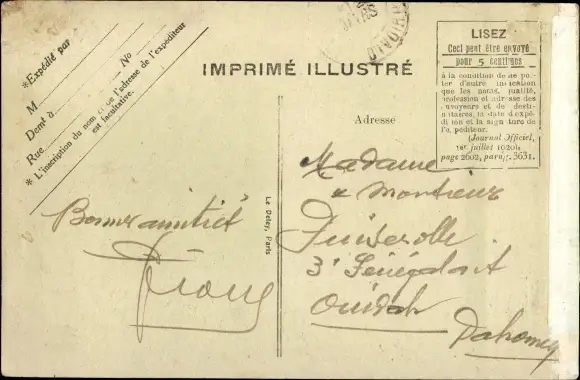 *Expédié par
M
No
Demt à
Rue
* L'inscription du nom et de l'adresse de l'expéditeur
est facultative.
IMPRIMÉ ILLUSTRÉ
LISEZ
Ceci peut être envoyé
pour 5 centimes
à la condition de ne por-
ter d'autre indication
que les noms, qualité,
profession et adresse des
envoyeurs et de desti-
nataires, la date d'expé-
dition et la signature de
l'expéditeur.
(Journal Officiel,
1er juillet 1920,
page 2602, parag. 3631.
Adresse
Madame
& Monsieur
3e Sénégalais
Ouidah
Dahomey
Bonne amitié
Le Deley, Paris